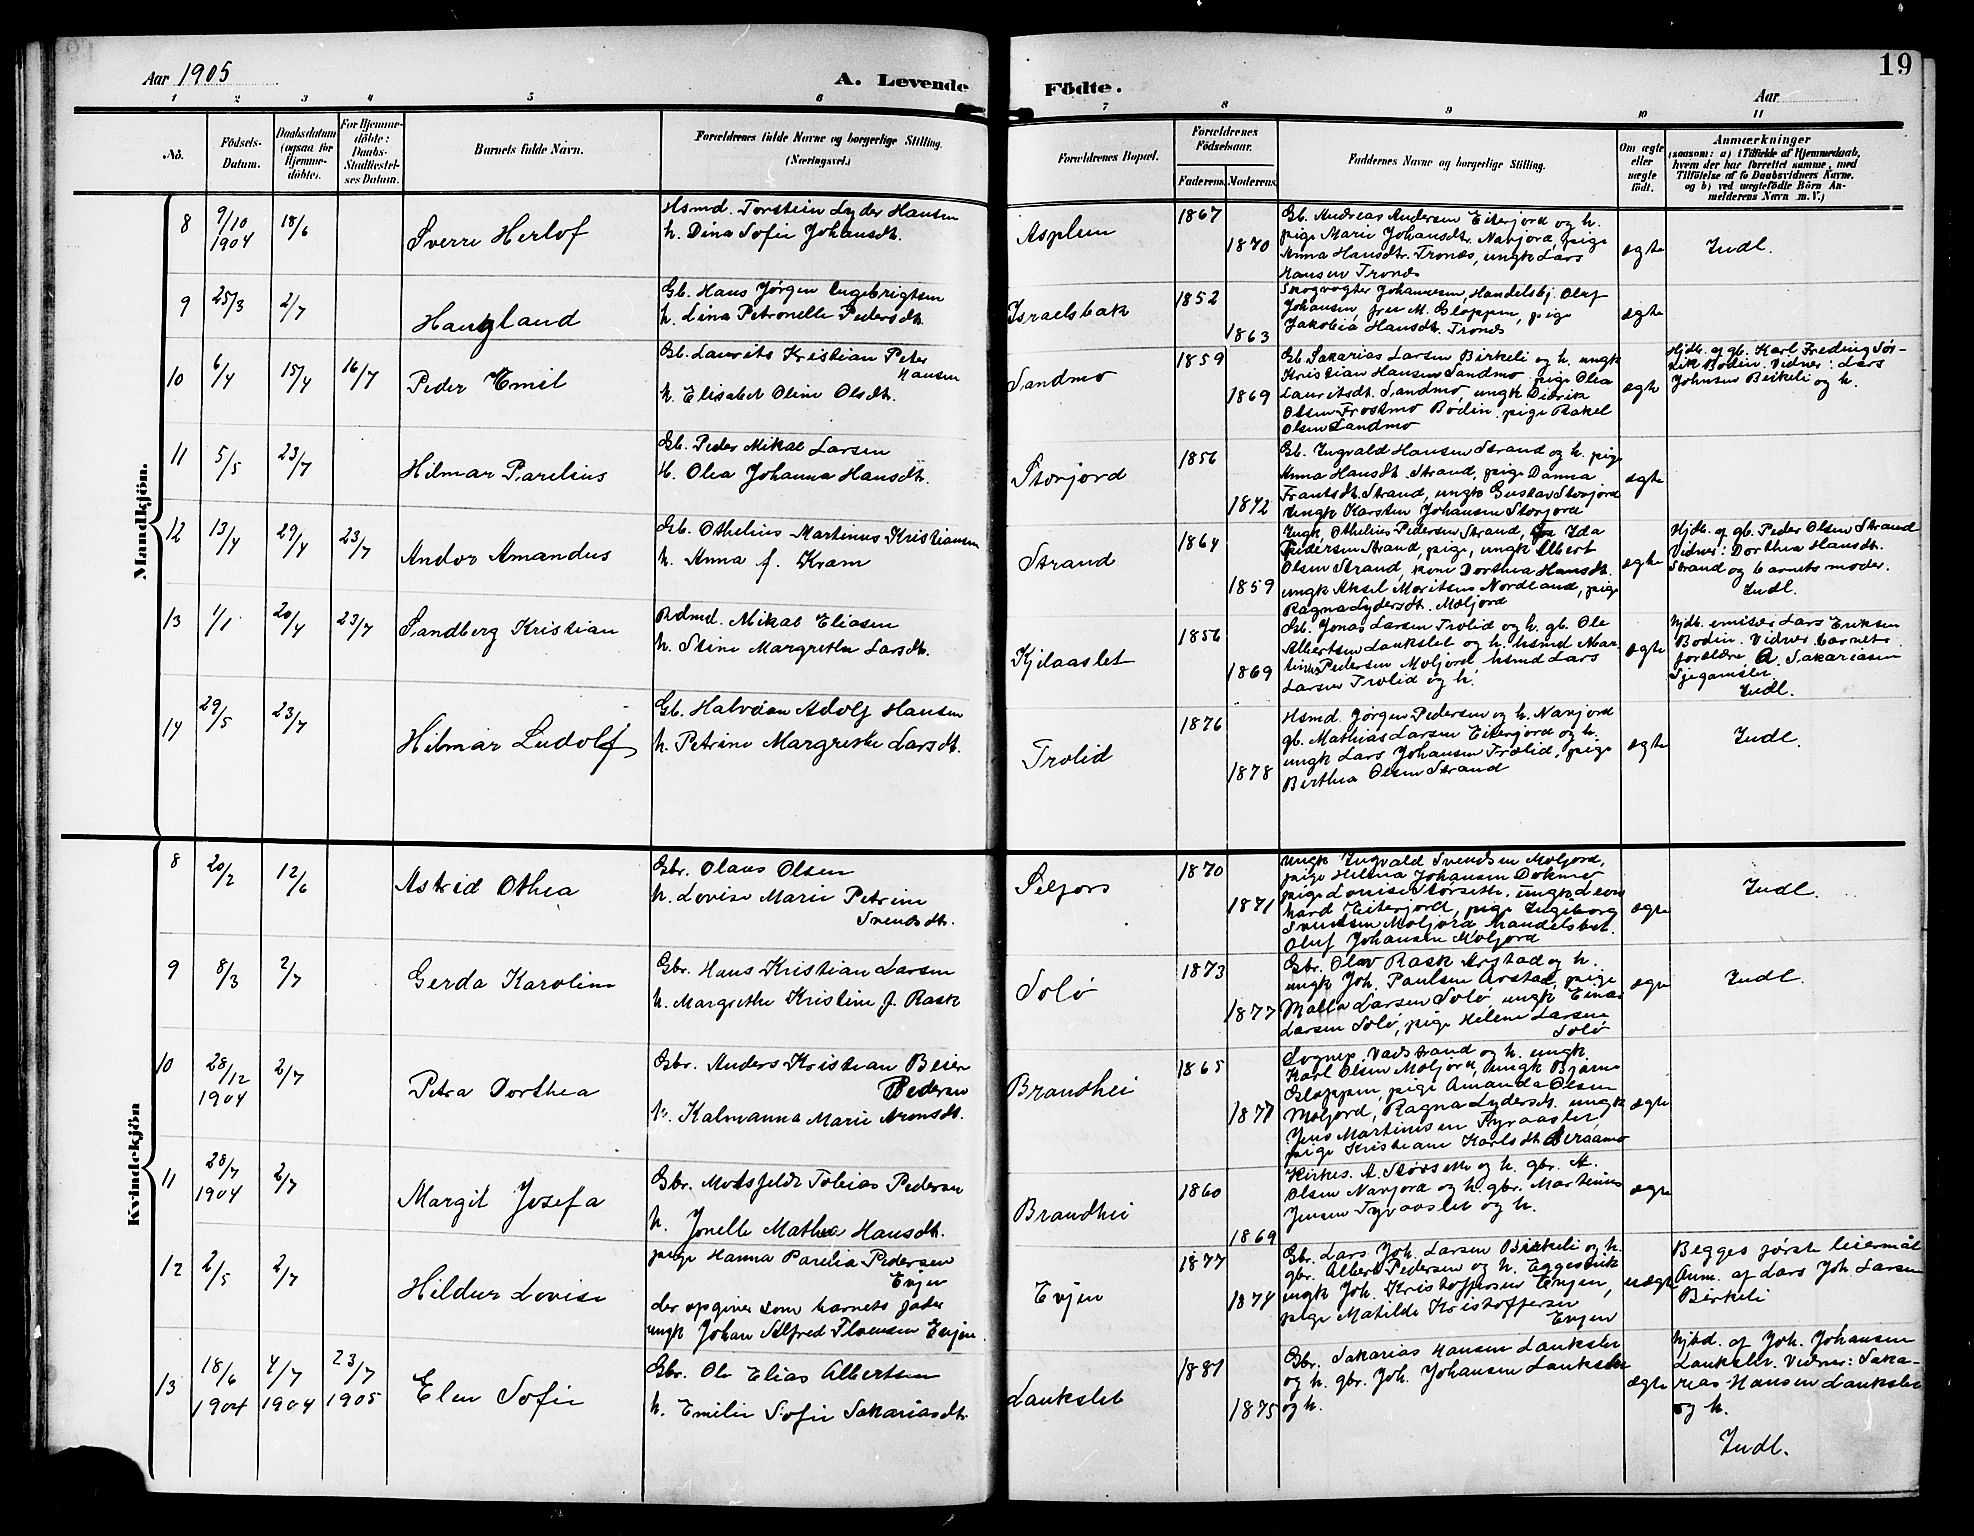 19
Aar 1905
A. Levende
Födte.
Aar
1 2 3 4 5 6 7 8 9 10 11
No.
Födsels-Datum.
Daabsdatum (ogsaa for Hjemme-döbte).
For Hjemme-döbte: Daabs-Stadfæstel-ses Datum.
Barnets fulde Navn.
Forældrenes fulde Navne og borgerlige Stilling. (Næringsvei.)
Forældrenes Bopæl.
Forældrenes Födselsaar.
Faderens. Moderens.
Faddernes Navne og borgerlige Stilling.
Om ægte eller uægte födt.
Anmærkninger
(saasom: a) i Tilfælde af Hjemmedaab,
hvem der har forrettet samme, med
Tilföielse af to Daabsvidners Navne.
og b) ved uægtefödte Börn An-
melderens Navn m. V.)
Mandkjön.
8 9/10 1904 18/6
Sverre Herlof
Hsmd. Torstein Lyder Hansen
h. Dina Sofie Johansdt.
Asplun
1867
1870
Gb. Andreas Andersen Eiterjord og h.
pige Marie Johansdt. Navjord, pige
Anna Hansdt. Tronæs, ungk Lars
Hansen Tronæs
ægte
Indl.
9 25/3 2/7
Haugland
Gb. Hans Jørgen Engebrigtsen
h. Lina Petronelle Pedersdt.
Israelsbak
1852
1863
Skogvogter Johannesen, Handelsbj. Oluf
Johansen, fru M. Gloppen, pige
Jakobia Hansdt. Tronæs
ægte
10 6/4 15/4 16/7
Peder Emil
Gb. Laurits Kristian Peter
Hansen
h. Elisabet Oline Olsdt.
Sandmo
1859
1869
Gb. Sakarias Larsen Birkeli og h. ungk
Kristian Hansen Sandmo, pige Olea
Lauritsdt. Sandmo, ungk Didrik
Olsen Frostmo Bodin. pige Rakel
Olsen Sandmo
ægte
Hjdb. af gb. Karl Freding Sør-
vik Bodin. Vidner: Lars
Johnsen Birkeli og h.
11 5/5 23/7
Hilmar Parelius
Gb. Peder Mikal Larsen
H. Olea Johanna Hansdt.
Storjord
1856
1842
Gb. Ingvald Hansen Strand og h. pige
Anna Hansdt. Strand, pige Danna
Frantsdt. Strand, ungk Gustav Storjord
ungk Karsten Johansen Storjord
ægte
12 13/4 29/4 23/7
Andor Amandus
Gb. Othelius Martinus Kristiansen
h. Anna f. Kram
Strand
1864
1859
Ungk. Othelius Pedersen Strand, Ida
Pedersen Strand, pige, ungk Albert
Olsen Strand kone Dorthea Hansdt.
ungk Aksel Moritsen Nordland, pige
Ragna Lydersdt. Moljord
ægte
Hjdb. af gb. Peder Olsen Strand
Vidner: Dorthea Hansdt.
Strand og barnets moder.
Indl.
13 1/1 20/4 23/7
Sandberg Kristian
Rdmd. Mikal Eliasen
h. Stine Margrethe Larsdt.
Kjelaaslet
1856
1869
Gb. Jonas Larsen Trolid og h. gb. Ole
Albertsen Laukslet og h. hsmd Mar-
tinus Pedersen Moljord, hsmd Lars
Larsen Trolid og h.
ægte
Hjdb. emisær Lars Eriksen
Bodin. Vidner: barnets
forældre, A. Sakariasen
Indl.
14 29/5 23/7
Hilmar Ludolf
Gb. Halvdan Adolf Hansen
h. Petrine Margrethe Larsdt.
Trolid
1876
1878
Hsmd. Jørgen Pedersen og h. Navjord
gb. Mathias Larsen Eiterjord og h.
ungk Lars Johansen Trolid, pige
Berthea Olsen Strand
ægte
Indl.
Kvindekjön
8 20/2 12/6
Astrid Othea
Gbr. Olaus Olsen
h. Lovise Marie Petrine
Svendsdt.
Selfors
1870
1871
ungk Ingvald Svendsen Moljord,
pige Helena Johansen Dokmo
pige Louise Storseth. ungk Leon
hard Eiterjord, pige Ingeborg
Svendsen Moljord handelsbest.
Oluf Johansen Moljord
ægte
Indl.
9 8/3 2/7
Gerda Karoline
Gbr. Hans Kristian Larsen
h. Margrethe Kristine f. Rask
Solø
1873
1877
Gbr. Olav Rask Arstad og h.
ungk Joh. Paulsen Arstad, pige
Malla Larsen Solø, ungk Einar
Larsen Solø, pige Helene Larsen
Solø
ægte
Indl.
10 28/12 1904 2/7
Petra Dorthea
Gbr. Anders Kristian Beier
Pedersen
h. Kalmanna Marie Aronsdt.
Brandhei
1865
1871
Sognep. Vadstrand og h. ungk.
Karl Olsen Moljord, ungk Bjarne
Gloppen, pige Amanda Olsen
Moljord, Ragna Lydersdt. ungk
Jens Martinisen Kyraaslet
pige Kristiane Karlsdt. Beraamo
ægte
11 28/7 1904 2/7
Margit Josefa
Gbr. Motsfeldt Tobias Pedersen
h. Jonelle Mathea Hansdt.
Brandhei
1860
1869
Kirkes. A. Storseth og h. gbr. A.
Olsen Navjord og h. gbr. Martinus
Jensen Tyvaaslet og h.
ægte
12 2/5 2/7
Hildur Lovise
pige Hanna Parelia Pedersen
Evjen
der opgiver som barnets fader
ungk Johan Alfred Floensen Evjen.
Evjen
1877
1874
Gbr. Lars Joh. Larsen Birkeli og h.
gbr. Albert Pedersen og h. Eggesvik
ungk Joh. Kristoffersen Evjen,
pige Matilde Kristoffersen
Evjen
uægte
Begges første leiermål
Anm. af Lars Joh. Larsen
Birkeli
13 18/6 1904 4/7 1904 23/7 1905
Elen Sofie
Gbr. Ole Elias Albertsen
h. Emilie Sofie Sakariasdt.
Laukslet
1881
1875
Gbr. Sakarias Hansen Laukslet
og h. gbr. Joh. Johansen Laukslet
og h.
ægte
hjbd. af Joh. Johansen
Laukslet. Vidner: Saka-
rias Hansen Laukslet
og h.
Indl.